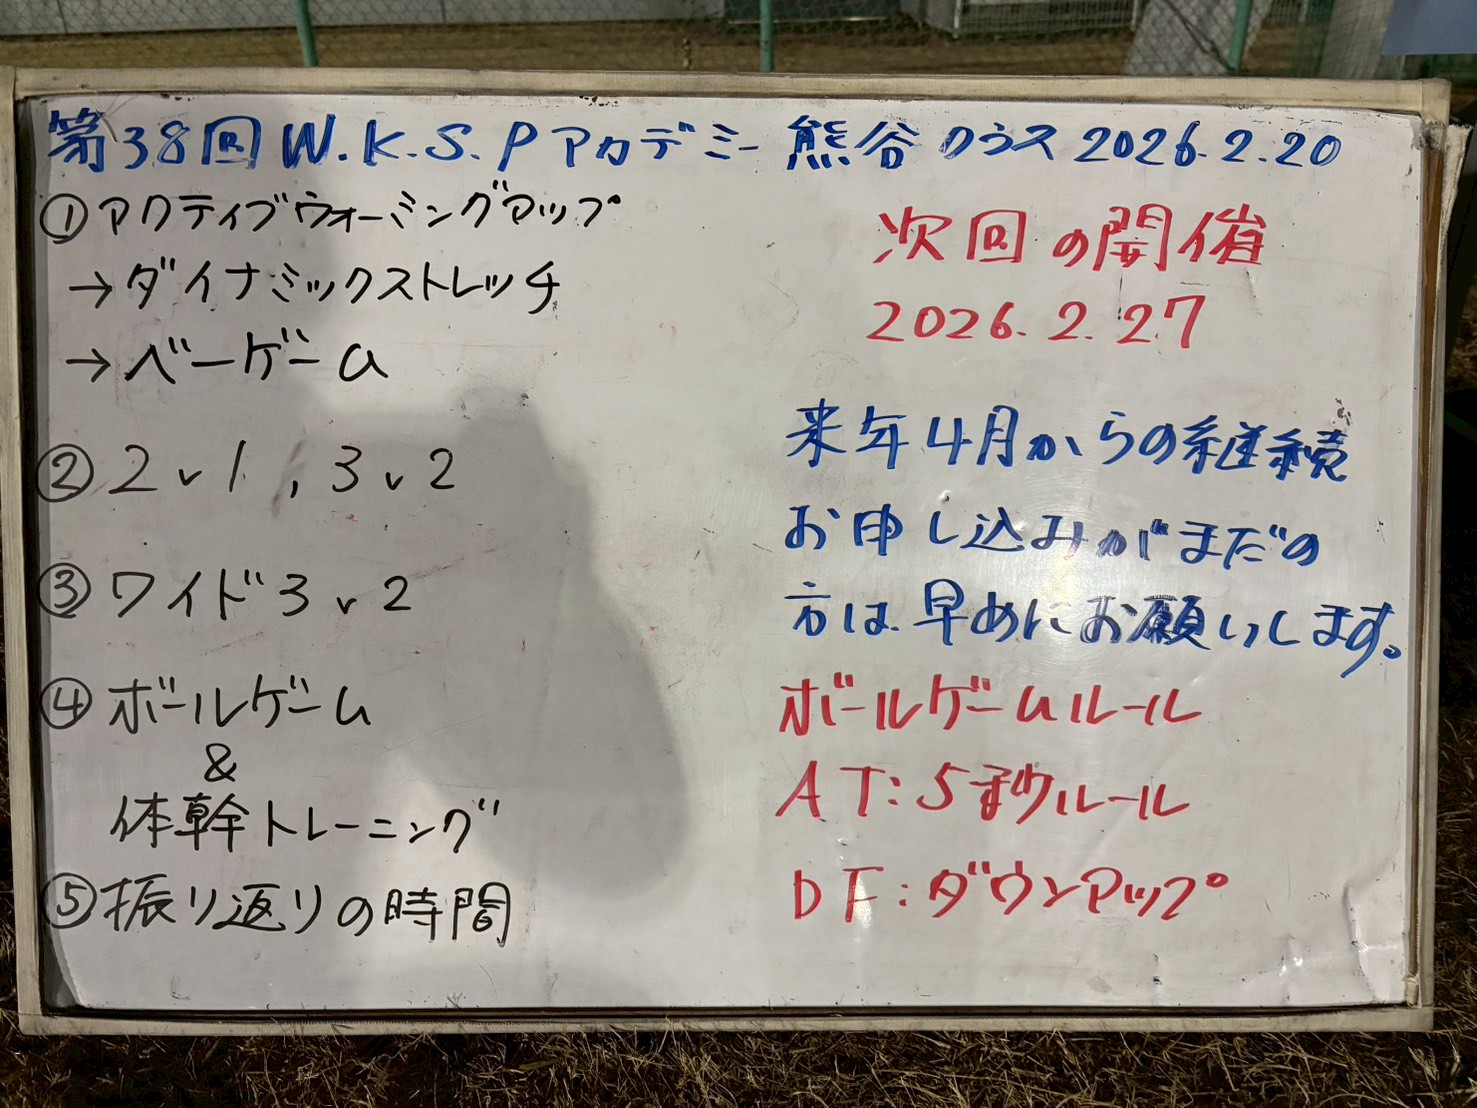 第38回 W.K.S.Pアカデミー 熊谷クラス 2026.2.20
①アクティブウォーミングアップ
→ダイナミックストレッチ
→ベーゲーム
②2v1,3v2
③ワイド3v2
④ボールゲーム
&
体幹トレーニング
⑤振り返りの時間
次回の開催
2026.2.27
来年4月からの継続
お申し込みがまだの
方は早めにお願いします。
ボールゲームルール
AT:5秒ルール
DF:ダウンアップ